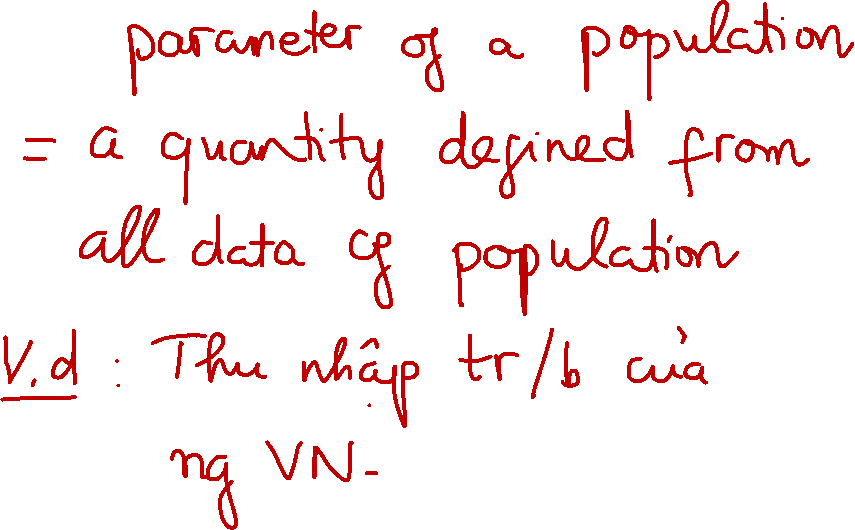 parameter of a population
= a quantity defined from
all data of population
V.d : Thu nhập tr/b của
ng VN.